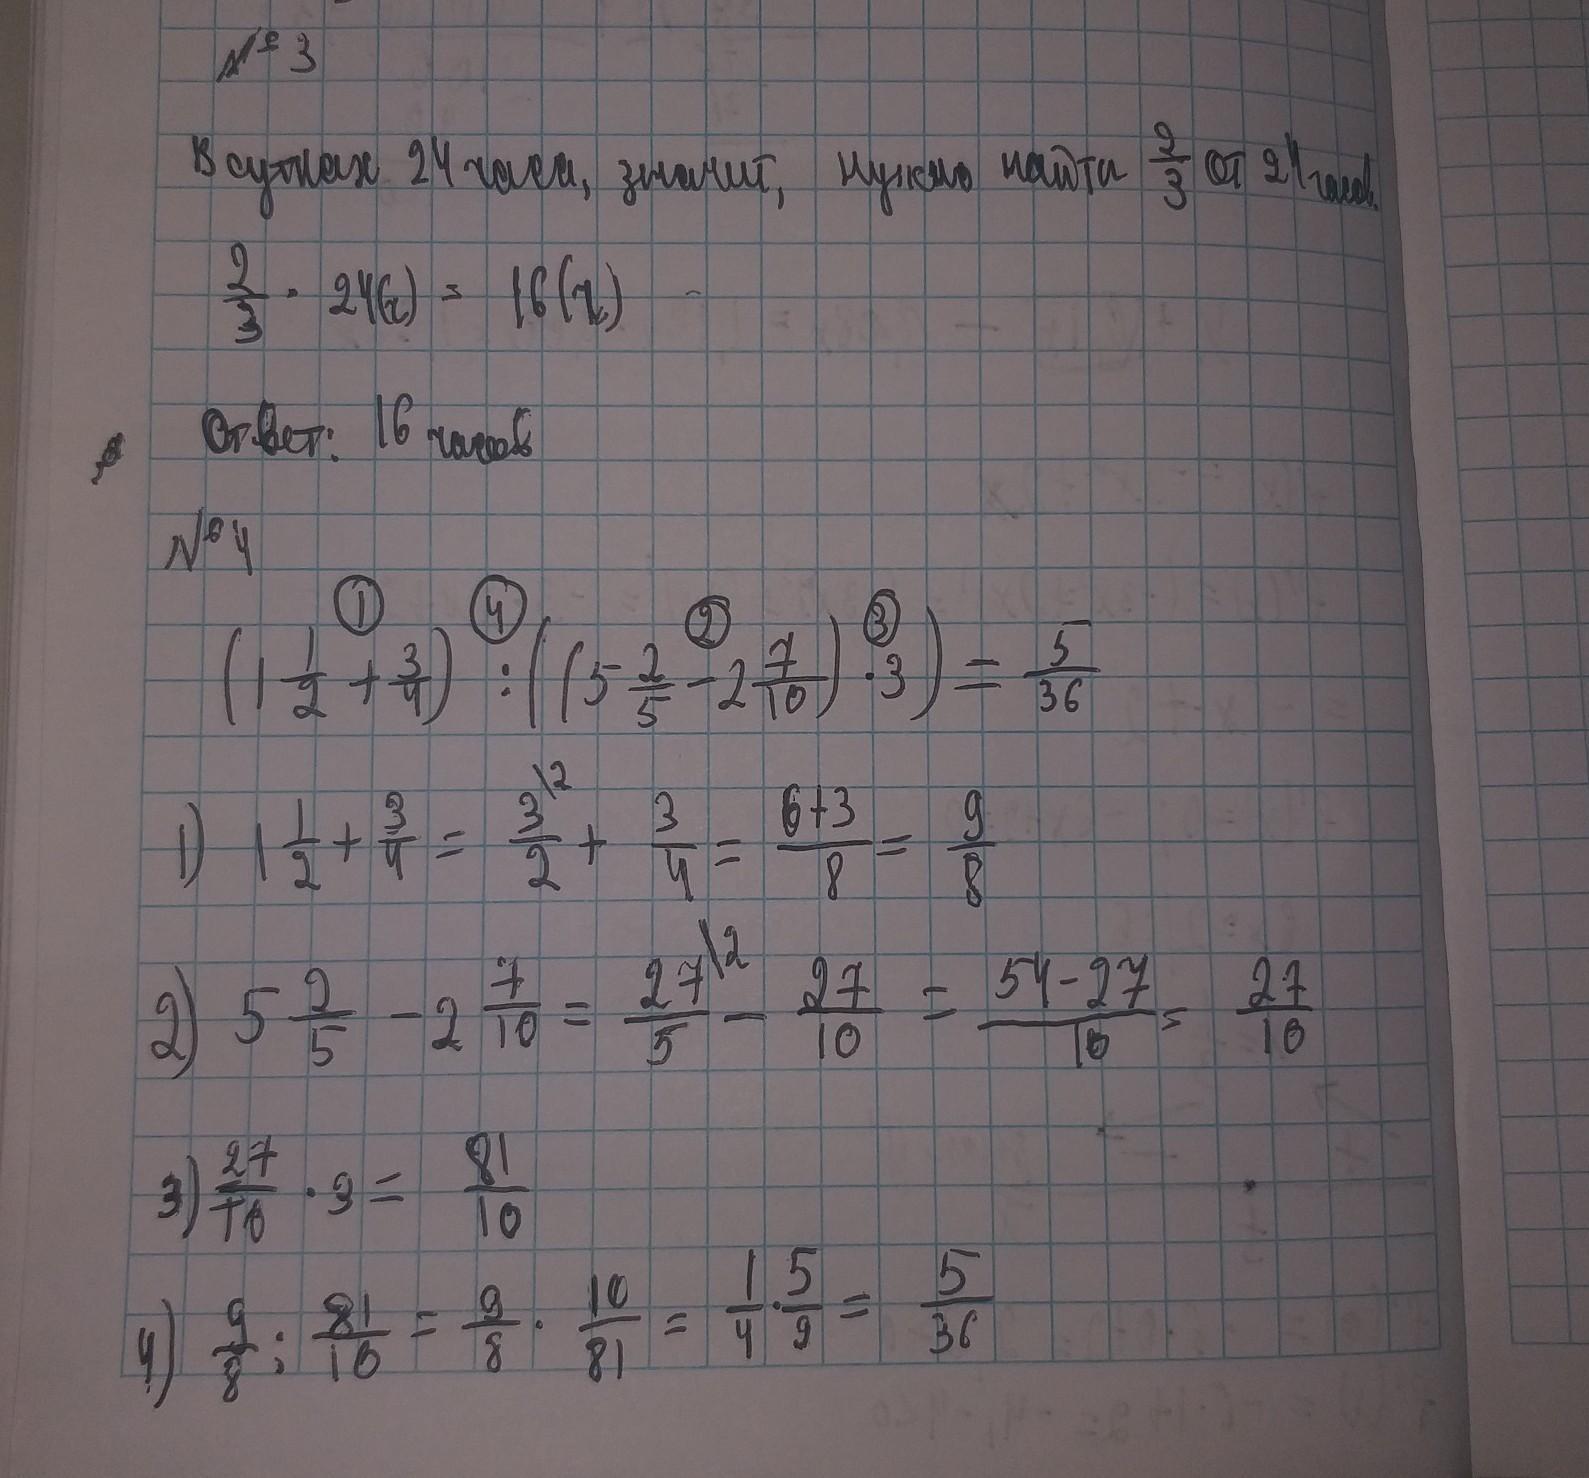 № 3
В сутках 24 часа, значит, нужно найти 2/3 от 24 часов.
2/3 · 24(ч) = 16(ч)
Ответ: 16 часов
№ 4
① ④ ② ③
(1 1/2 + 3/4) : ((5 2/5 - 2 7/10) · 3) = 5/36
1) 1 1/2 + 3/4 = 3\2/2 + 3/4 = 6+3/8 = 9/8
2) 5 2/5 - 2 7/10 = 27\2/5 - 27/10 = 54-27/10 = 27/10
3) 27/10 · 3 = 81/10
4) 9/8 : 81/10 = 9/8 · 10/81 = 1/4 · 5/9 = 5/36